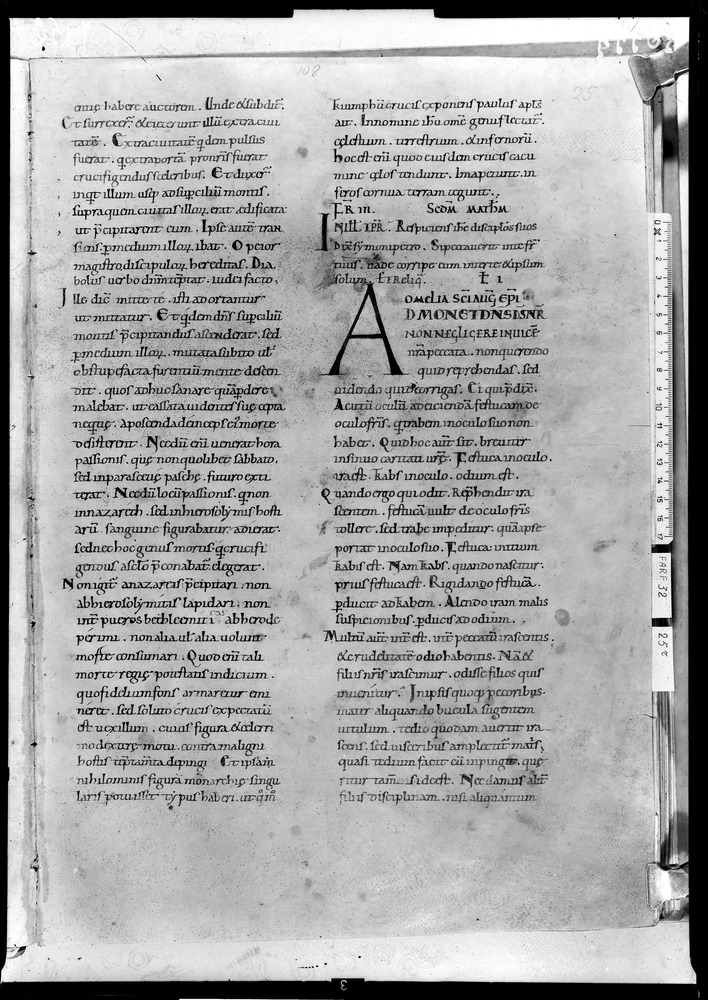 108
25
entię habere auctorem. Unde & subdit̄.
Et surrexer̄. & eiecerunt illū extra ciui
tatē. Extra ciuitatē qdem pulsus
fuerat. q extra portā
crucifigendus sceleribus. Et duxer̄
inqt illum usq; ad supciliū montis.
supra quem ciuitas illoꝝ erat edificata
ut p̄cipitarent eum. Ipse autē tran
siens p medium illoꝝ ibat. O peior
magistro discipuloꝝ hereditas. Dia
bolus uerbo dnm tēptat. iudei facto.
Ille dic̄ mitte te. isti adortantur
ut mittatur. Et qdem dn̄s supciliū
montis p̄cipitandus ascenderat. sed
p medium illoꝝ. mutata subito ul'
obstupefacta furentiū mente descen
dit. quos adhuc sanare quā pdere
malebat. ut cassata uidentes sue cepta
nequę. aposcenda deinceps ei morte
desisterent. Necdū eni uenerat hora
passionis. quę non quolibet sabbato.
sed in parasceuę paschę. futuro exti
terat. Necdū locū passionis. q non
in nazareth. sed in hierosolymis hosti
arū sanguine figurabatur adierat.
sed nec hoc genus mortis q crucifi
gendus a sclo p̄conabat̄ elegerat.
Non igit̄ a nazareis p̄cipitari. non
ab hierosolymitis lapidari. non
int̄ pueros bethleemiticas ab herode
perimi. non alia ul' alia uoluit
morte consumari. Quod eni tali
morte regię potestatis indicium.
quo fideliū fons armaretur emi
neret. sed soluto crucis expectatū
est uexillum. cuius figura & celeri
no dexterę motu. contra maligni
hostis tēptamta depingi. Et ipsam
nihilominus figura monarchię singu
laris potuisset typus haberi. ut q in
triumphū crucis exponens paulus apls̄
ait. In nomine ihu omē genu flectat̄.
cęlestium. terrestrium. & infernorū.
Hoc est eni quo eiusdem crucis cacu
mine cęlos tendunt. Ima petunt. in
feros cornua terram tegunt.
FR III. SECDM MATHM
IN ILL. TPR. Respiciens ihc discipulos suos
Dixit symoni petro. Si peccauerit in te fr̄
tuus. uade corripe eum inter te & ipsum
solum. Et reliq.
OMELIA SCI AUG EPI
ADMONET DNS DS NR
NON NEGLIGERE INUICĒ
nr̄a peccata. non querendo
quid reprehendas. sed
uidendo quid corrigas. Ei qui p̄dix̄.
Acutū oculū ad eiciendā festucam de
oculo fris. q trabem in oculo suo non
habet. Quid hoc aut̄ sit. breuiter
insinuo caritati urę. Festuca in oculo.
ira est. trabs in oculo. odium est.
Quando ergo qui odit. Rephendit ira
scentem. festucā uult de oculo fris
tollere. sed trabe impeditur. quā ipse
portat in oculo suo. Festuca initium
trabis est. Nam trabs. quando nascitur.
prius festuca est. Rigando festucā.
pducit ad trabem. Alendo iram malis
suspicionibus. pducis ad odium.
Multū aut̄ int̄ est. int̄ peccatū irascentis.
& crudelitatē odio habentis. Nā &
filiis nr̄is irascimur. odisse filios quis
inuenitur. In ipsis quoq; pecoribus.
mater aliquando bucula sugentem
uitulum. tedio quodam auertit ira
scens. sed uisceribus amplectit̄ matr̄.
quasi tedium facit cū inpingit. quę
ritur tam si deest. Nec damus alit̄
filiis disciplinam. nisi aliquantum
0 1 2 3 4 5 6 7 8 9 10 11 12 13 14 15 16 17
FARF 32
25r
3